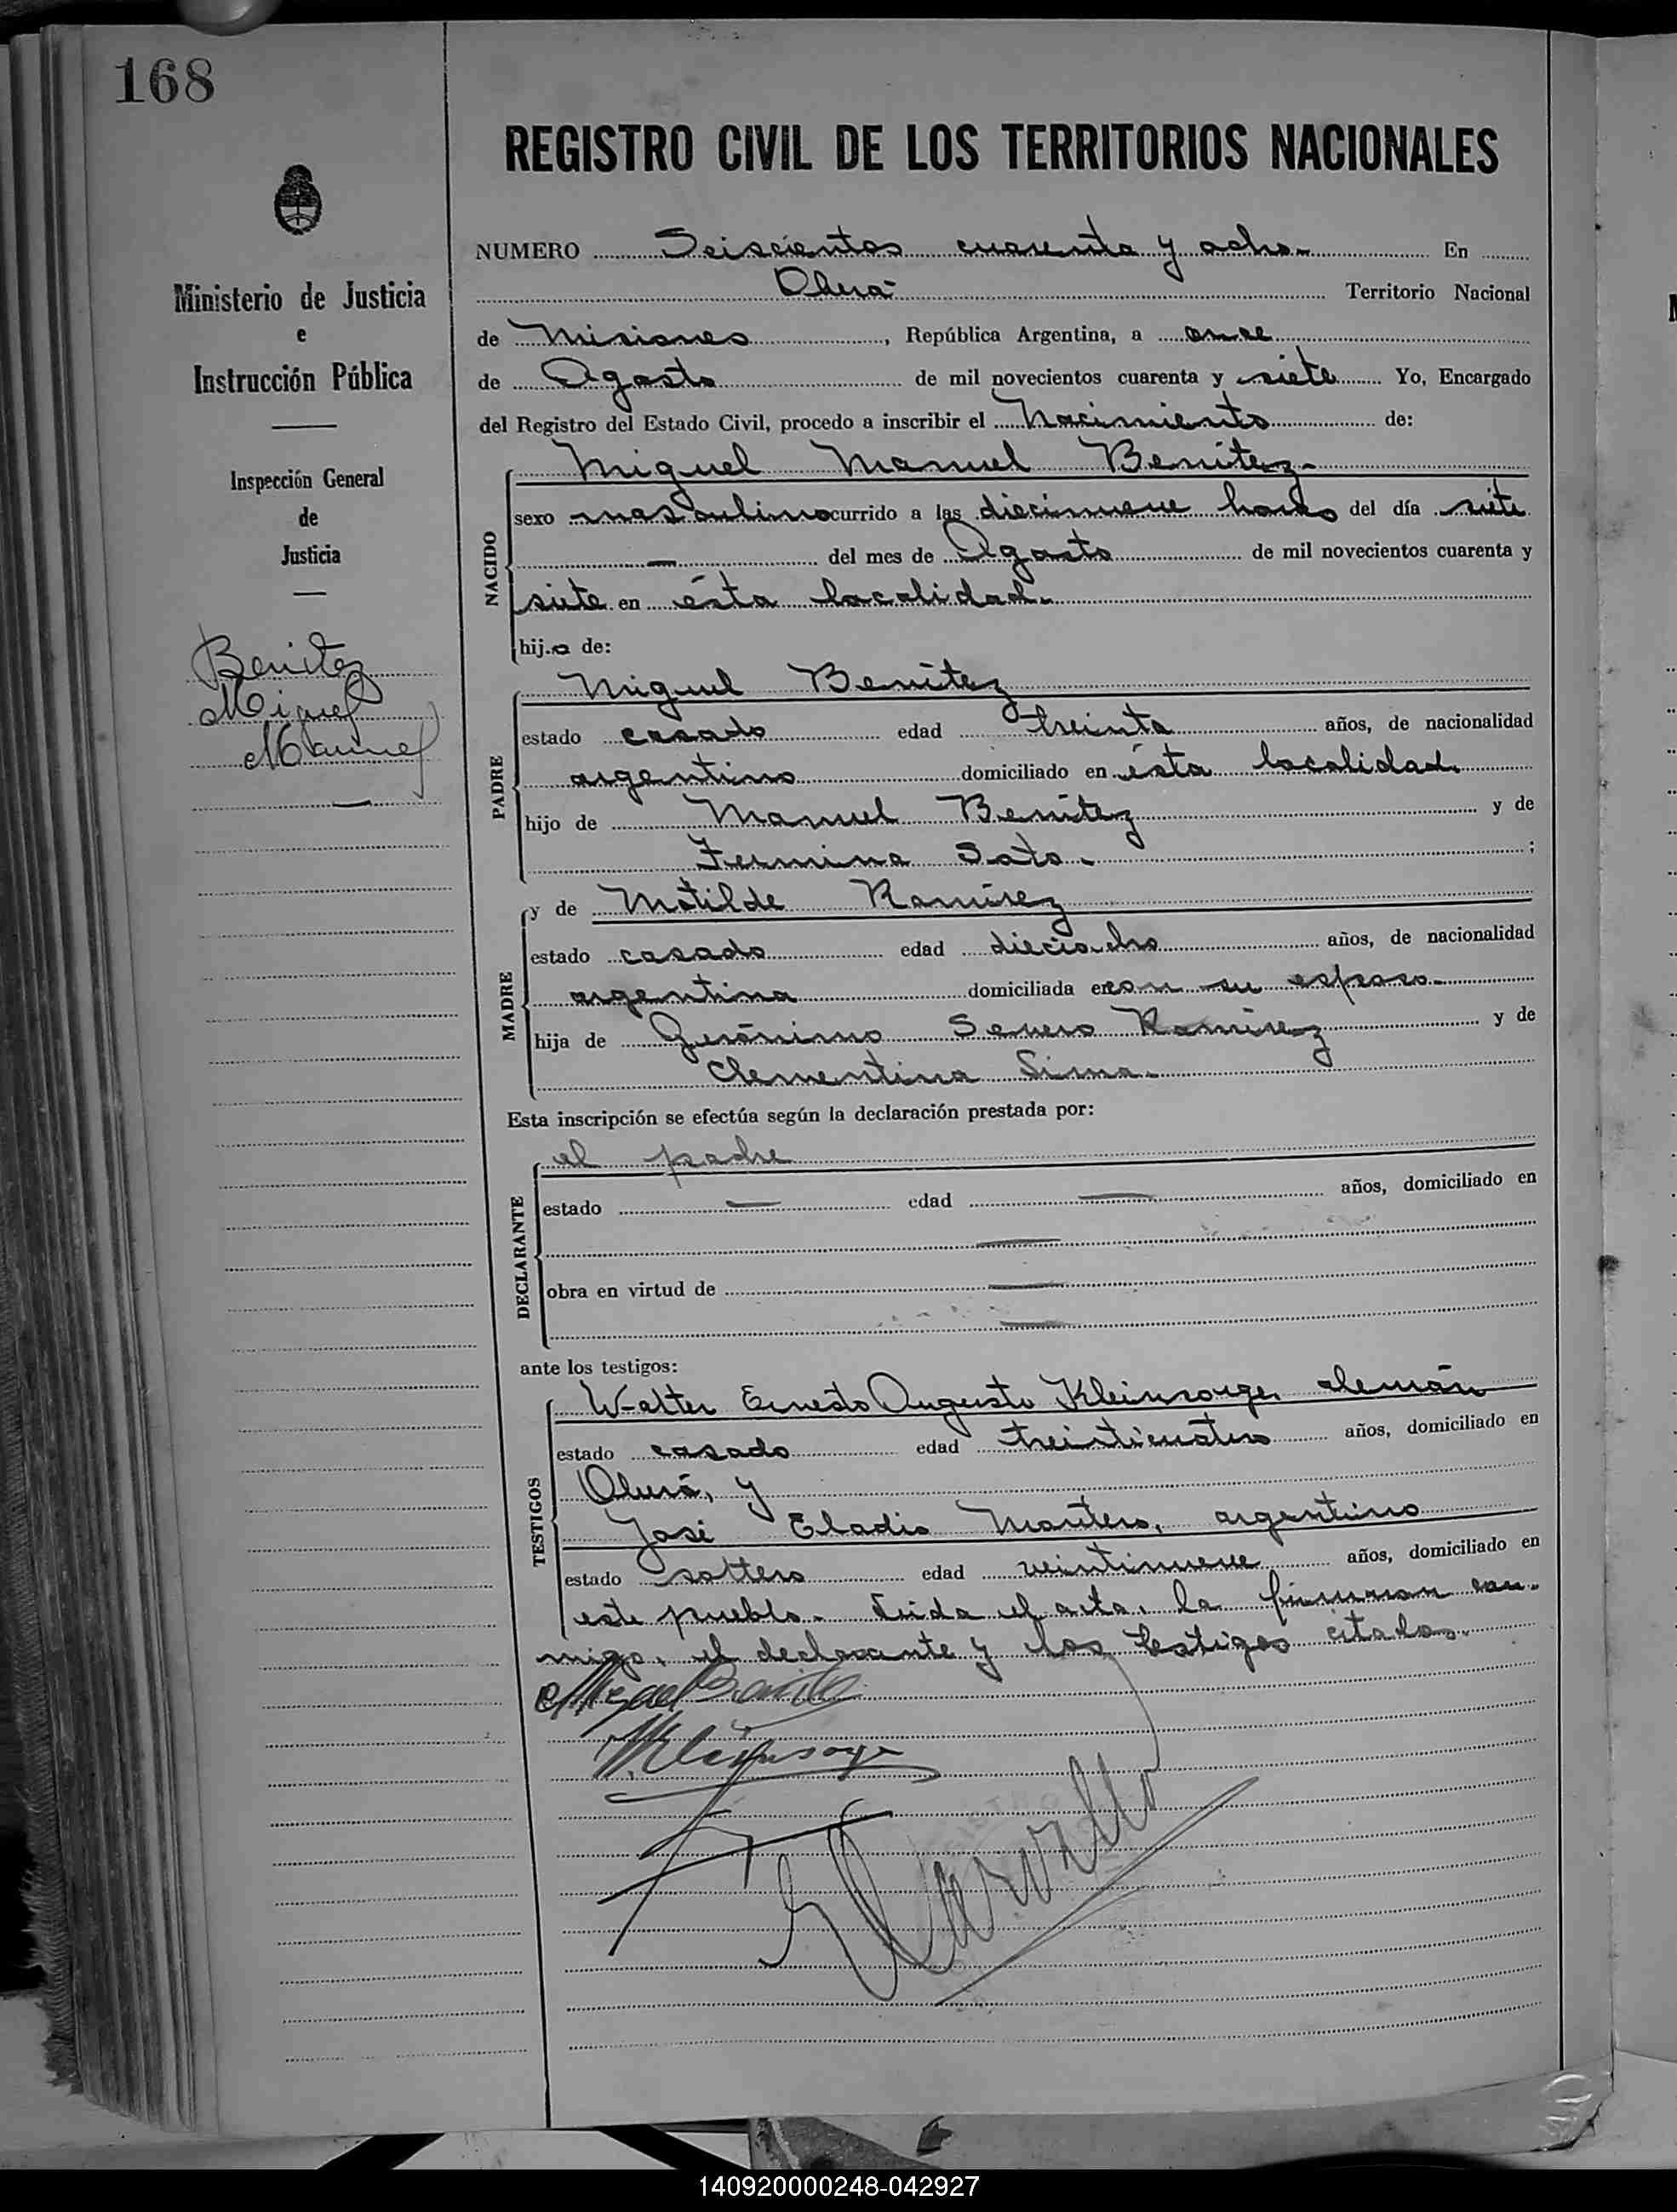 168
Ministerio de Justicia
e
Instrucción Pública
Inspección General
de
Justicia
Benitez
Miguel
Manuel
REGISTRO CIVIL DE LOS TERRITORIOS NACIONALES
NUMERO Seiscientos cuarenta y ocho.- En
Oberá Territorio Nacional
de Misiones, República Argentina, a once
de Agosto de mil novecientos cuarenta y siete Yo, Encargado
del Registro del Estado Civil, procedo a inscribir el Nacimiento de:
Miguel Manuel Benítez.-
NACIDO
sexo masculino ocurrido a las diecinueve horas del día siete
— del mes de Agosto de mil novecientos cuarenta y
siete en ésta localidad.
hijo de:
PADRE
Miguel Benítez
estado casado edad treinta años, de nacionalidad
argentino domiciliado en ésta localidad.
hijo de Manuel Benítez y de
Fermina Soto. ;
MADRE
y de Matilde Ramírez
estado casado edad dieciocho años, de nacionalidad
argentina domiciliada en con su esposo.
hija de Gerónimo Severo Ramírez y de
Clementina Sima.
Esta inscripción se efectúa según la declaración prestada por:
DECLARANTE
el padre
estado — edad — años, domiciliado en
—
obra en virtud de —
—
ante los testigos:
TESTIGOS
Walter Ernesto Augusto Kleinsorge, alemán
estado casado edad treinticuatro años, domiciliado en
Oberá, y
José Eladio Montero, argentino
estado soltero edad veintinueve años, domiciliado en
este pueblo. Leida el acta, la firman con-
migo, el declarante y los testigos citados.
Miguel Benitez
W. Kleinsorge
REGISTRO
140920000248-042927